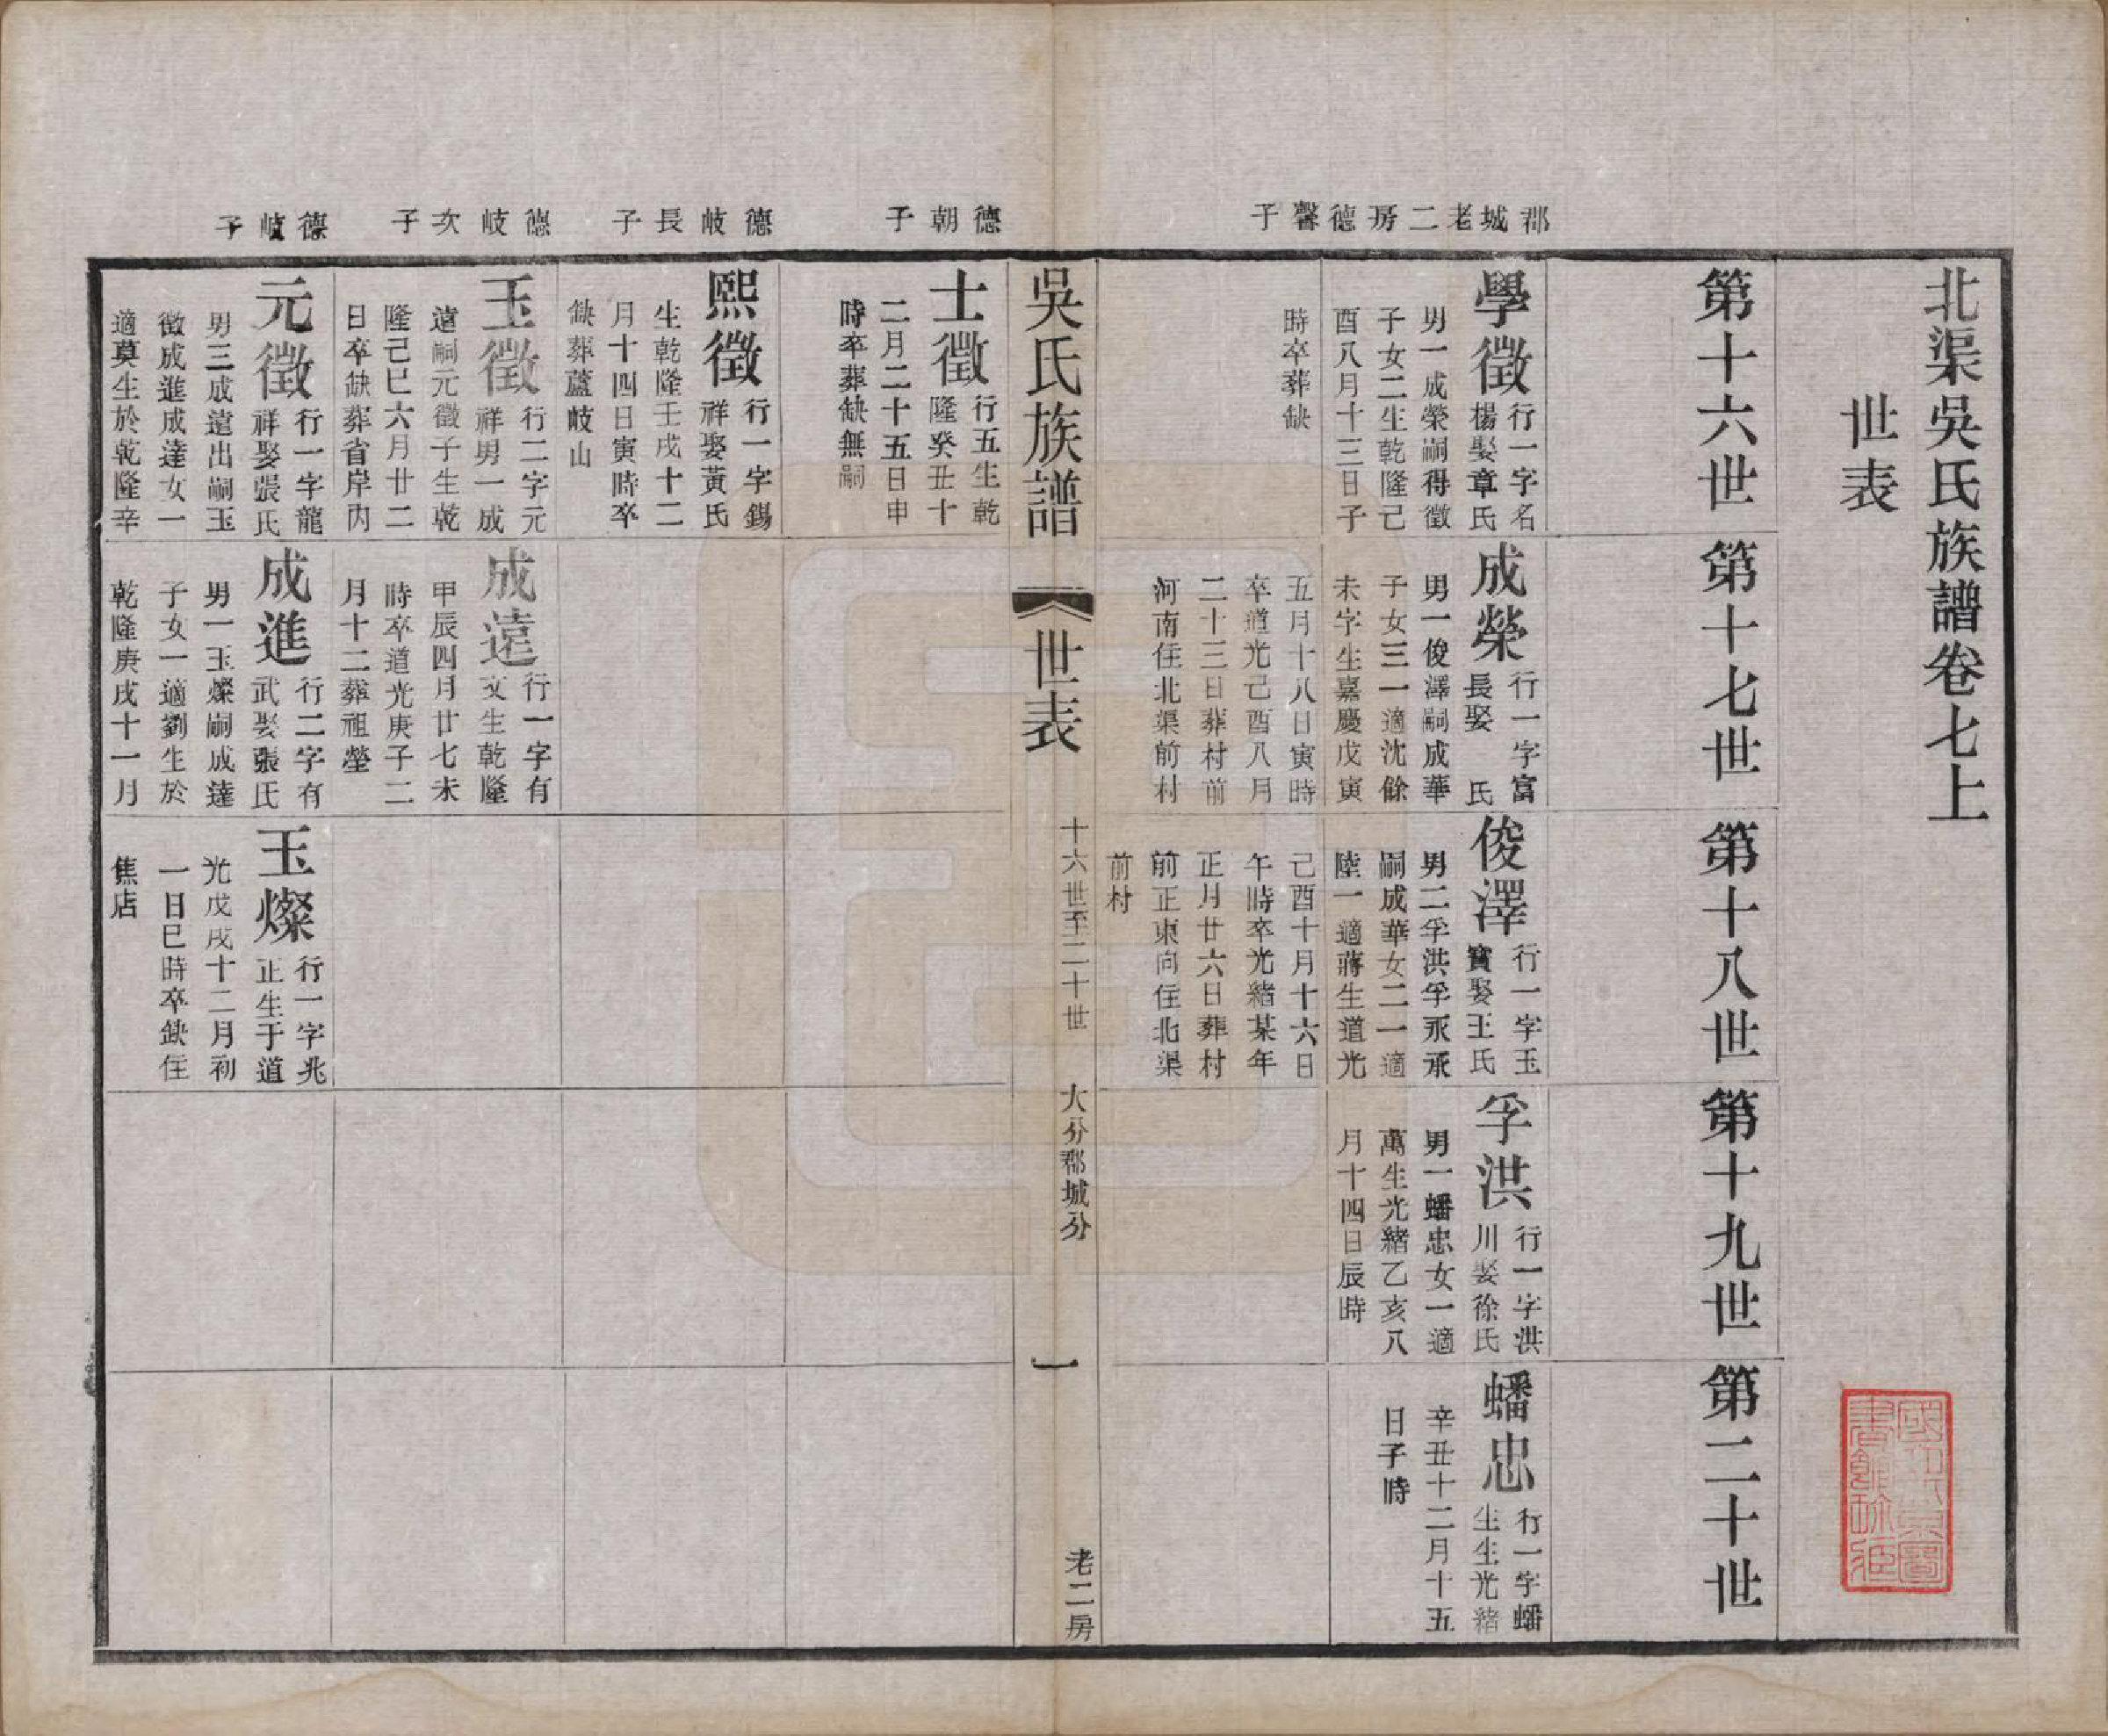 北渠吳氏族譜卷七上
世表
第十六世
第十七世
第十八世
第十九世
第二十世
郡城老二房德馨子
學徵
行一字名
楊娶章氏
男一成榮嗣得徵
子女二生乾隆己
酉八月十三日子
時卒葬缺
成榮
行一字富
長娶 氏
男一俊澤嗣成華
子女三一適沈餘
未字生嘉慶戊寅
五月十八日寅時
卒道光己酉八月
二十三日葬村前
河南住北渠前村
俊澤
行一字玉
寳娶王氏
男二孚洪孚永承
嗣成華女二一適
陸一適蔣生道光
己酉十月十六日
午時卒光緒某年
正月廿六日葬村
前正東向住北渠
前村
孚洪
行一字洪
川娶徐氏
男一蟠忠女一適
萬生光緒乙亥八
月十四日辰時
蟠忠
行一字蟠
生生光緒
辛丑十二月十五
日子時
吳氏族譜
世表
十六世至二十世
大分郡城分
一
老二房
德朝子
士徵
行五生乾
隆癸丑十
二月二十五日申
時卒葬缺無嗣
德岐長子
熙徵
行一字錫
祥娶黃氏
生乾隆壬戌十二
月十四日寅時卒
缺葬蘆岐山
德岐次子
玉徵
行二字元
祥男一成
遠嗣元徵子生乾
隆己巳六月廿二
日卒缺葬省岸內
成遠
行一字有
文生乾隆
甲辰四月廿七未
時卒道光庚子二
月十二葬祖塋
德岐子
元徵
行一字龍
祥娶張氏
男三成遠出嗣玉
徵成進成達女一
適莫生於乾隆辛
成進
行二字有
武娶張氏
男一玉燦嗣成達
子女一適劉生於
乾隆庚戌十一月
玉燦
行一字兆
正生于道
光戊戌十二月初
一日巳時卒缺住
焦店